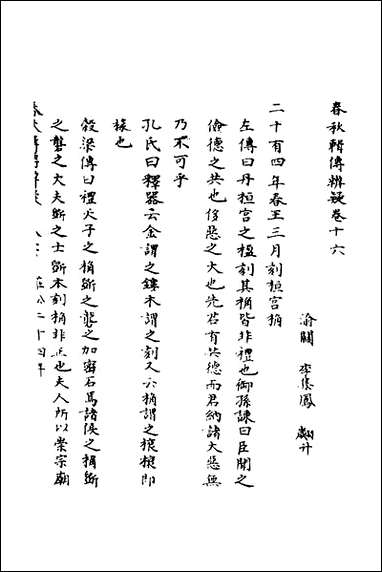 春秋輯傳辨疑卷十六
渝關 李集鳳 翽升
二十有四年春王三月刻桓宮桷
左傳曰丹桓宮之楹刻其桷皆非禮也御孫諫曰臣聞之
儉德之共也侈惡之大也先君有共德而君納諸大惡無
乃不可乎
孔氏曰釋器云金謂之鏤木謂之刻又云桷謂之榱榱即
椽也
穀梁傳曰禮天子之桷斲之礱之加密石焉諸侯之桷斲
之礱之大夫斲之士斲本刻桷非正也夫人所以崇宗廟
春秋輯傳辨疑 莊公二十四年